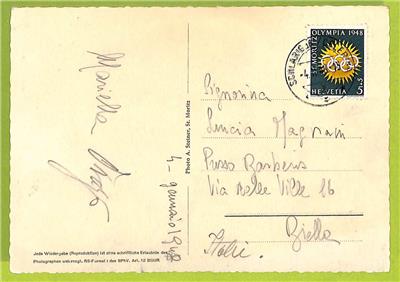 Mariella
4 - gennaio 1948
Jede Wiedergabe (Reproduktion) ist ohne schriftliche Erlaubnis des
Photographen untersagt.
Photo A. Steiner, St. Moritz
OLYMPIA 1948
ST. MORITZ
HELVETIA 5
Signorina
Lucia
Presso Barberis
Via Belle Ville 16
Biella
Italie.